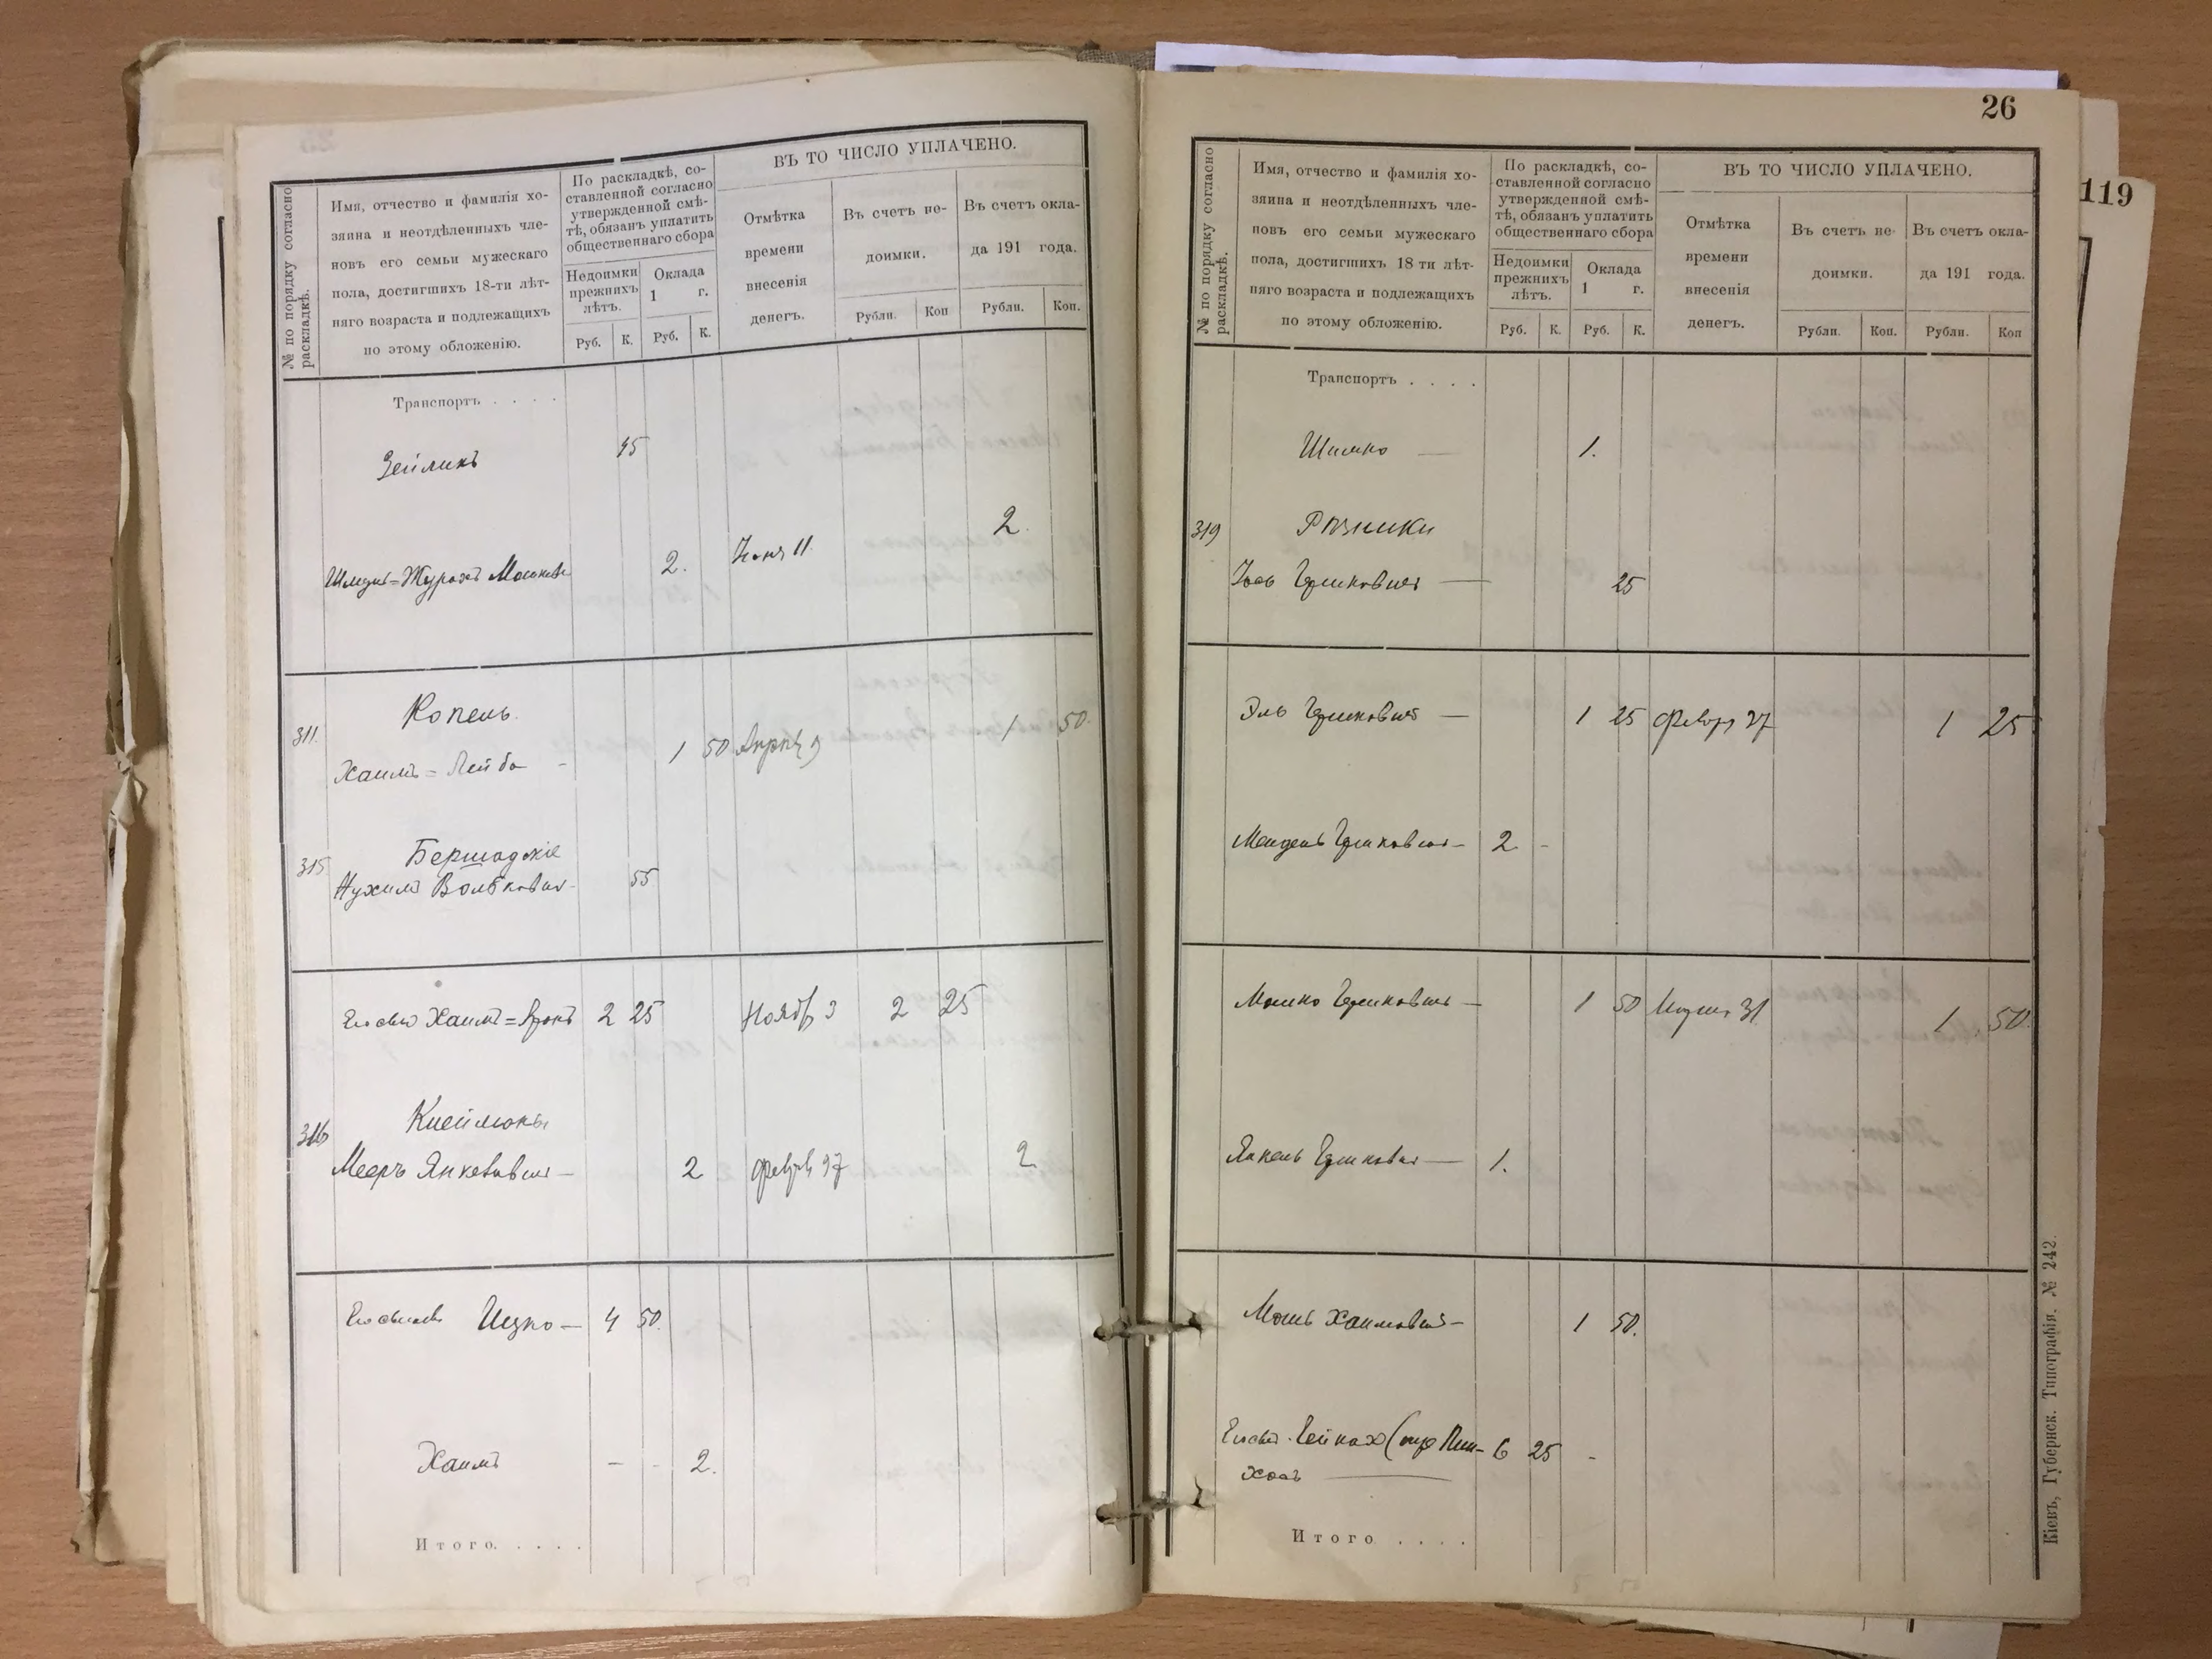 № по порядку согласно раскладкѣ.
Имя, отчество и фамилія хо-
зяина и неотдѣленныхъ чле-
новъ его семьи мужескаго
пола, достигшихъ 18-ти лѣт-
няго возраста и подлежащихъ
по этому обложенію.
По раскладкѣ, со-
ставленной согласно
утвержденной смѣ-
тѣ, обязанъ уплатить
общественнаго сбора
Недоимки
прежнихъ
лѣтъ.
Оклада
1 г.
Руб. К. Руб. К.
ВЪ ТО ЧИСЛО УПЛАЧЕНО.
Отмѣтка
времени
внесенія
денегъ.
Въ счетъ не-
доимки.
Рубли. Коп
Въ счетъ окла-
да 191 года.
Рубли. Коп.
Транспортъ . . . .
Зейликъ 45
2. 11. 2.
311. Копель
Хаимъ = Лейба - 1 50 Апрѣ 9 1 50.
315 Бершадскіе
Нухимъ Волькович 55
Хаимъ = 2 25 Нояб 3 2 25
316
Мееръ Янкевович — 2 февр 27 2
Ицко — 4 50.
Хаимъ — - 2.
Итого. . . . .
26
№ по порядку согласно раскладкѣ.
Имя, отчество и фамилія хо-
зяина и неотдѣленныхъ чле-
новъ его семьи мужескаго
пола, достигшихъ 18 ти лѣт-
няго возраста и подлежащихъ
по этому обложенію.
По раскладкѣ, со-
ставленной согласно
утвержденной смѣ-
тѣ, обязанъ уплатить
общественнаго сбора
Недоимки
прежнихъ
лѣтъ.
Оклада
1 г.
Руб. К. Руб. К.
ВЪ ТО ЧИСЛО УПЛАЧЕНО.
Отмѣтка
времени
внесенія
денегъ.
Въ счетъ не-
доимки.
Рубли. Коп.
Въ счетъ окла-
да 191 года.
Рубли. Коп
Транспортъ . . . .
Шимко — 1.
319 Рѣзники
Гершковичъ — 25
Эль Гершковичъ — 1 25 февр 27 1 25
Мендель Гершкович — 2 -
Мошко Гершкович — 1 50 31 1 50.
Янкель Гершкович — 1.
Хаимович — 1 50.
6 25 -
Итого . . . .
Кіевъ, Губернск. Типографія. № 242.
119